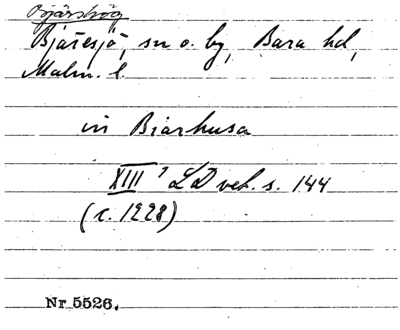 Bjärshög
Bjäresjö, sn o. by, Bara hd,
Malm. l.
in Biarhusa
XIII¹ LD vet. s. 144
(c. 1228)
Nr 5526.